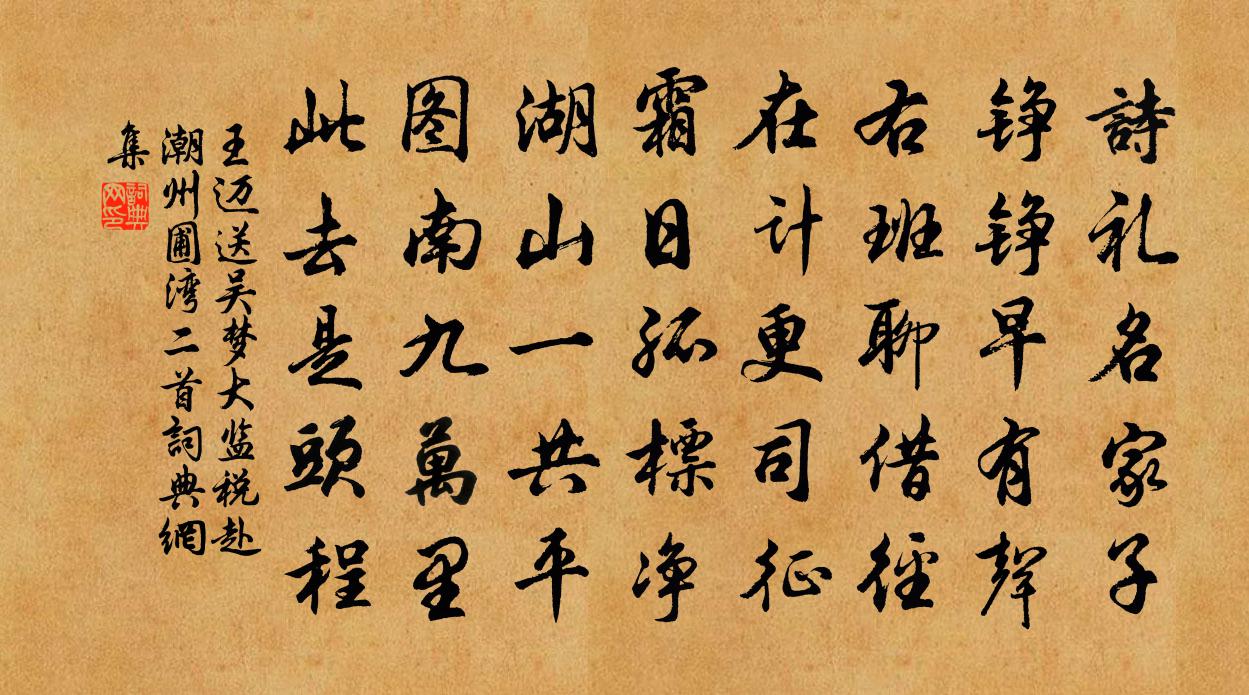 詩礼名家子
铮铮早有聲
右班聊借徑
在计更司征
霜日孤標净
湖山一共平
图南九萬里
此去是頭程
王迈送吴梦大监税赴
潮州圃湾二首詞典網
集
詞典
网印